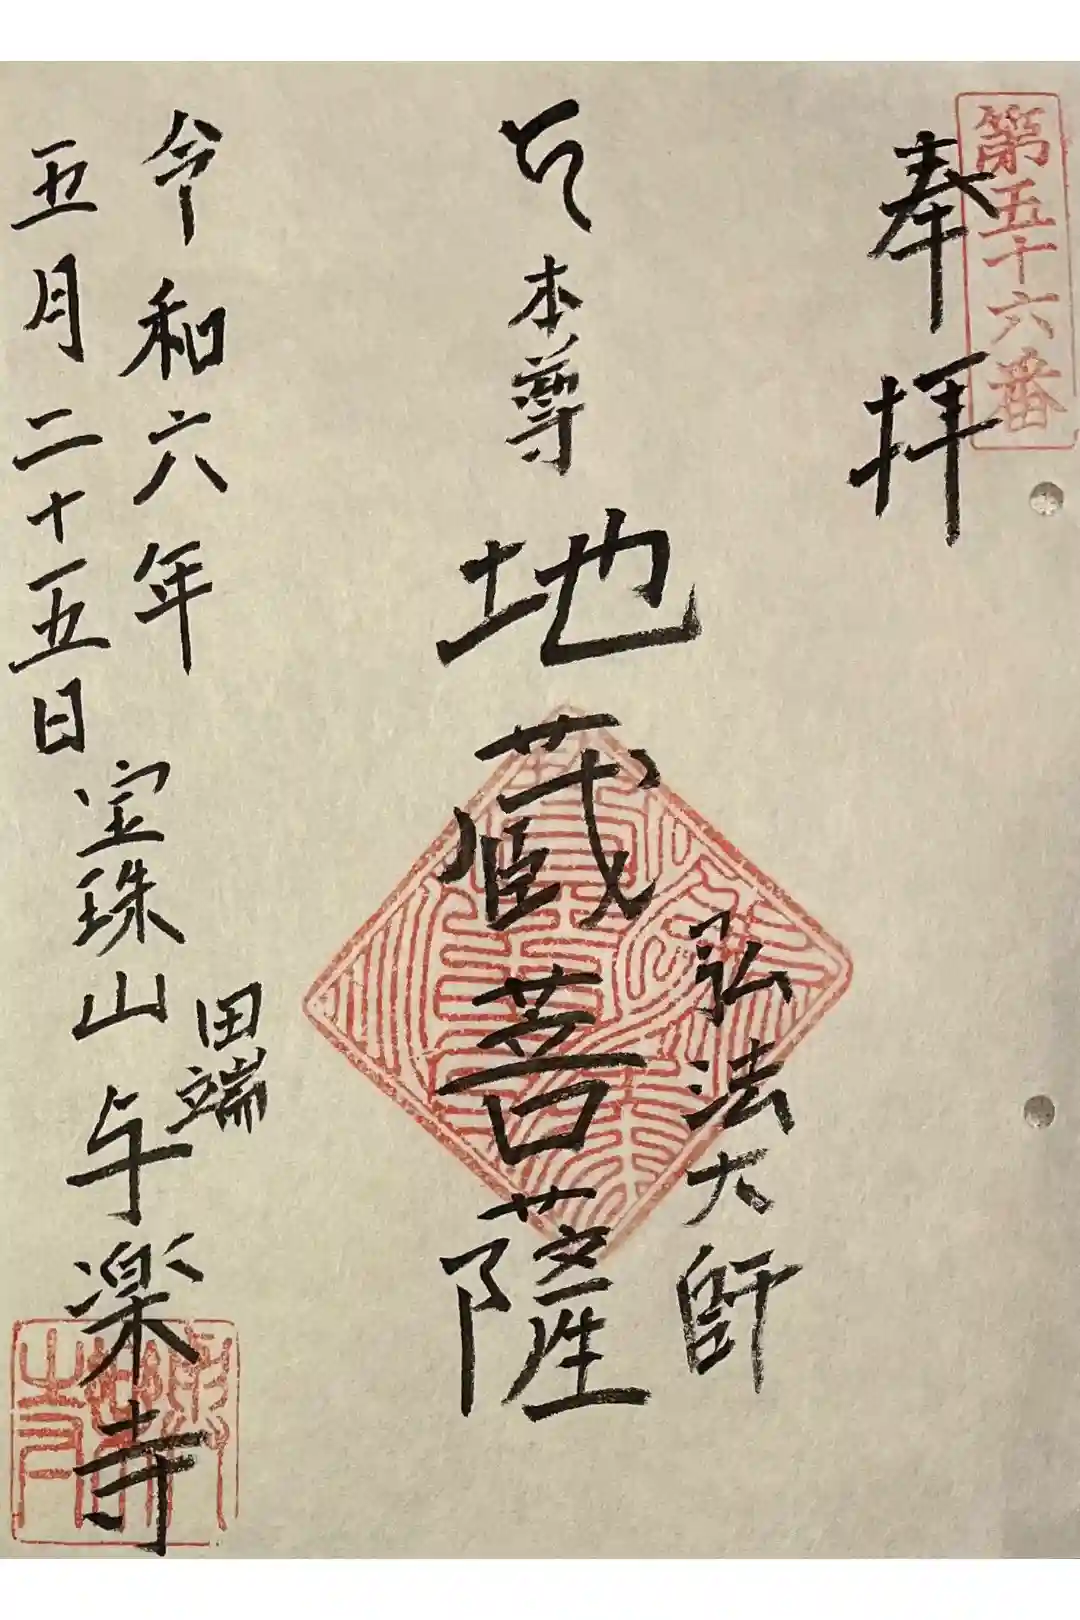 第五十六番
奉拝
弘法大師
本尊 地蔵菩薩
田端
令和六年
五月二十五日
宝珠山 与楽寺